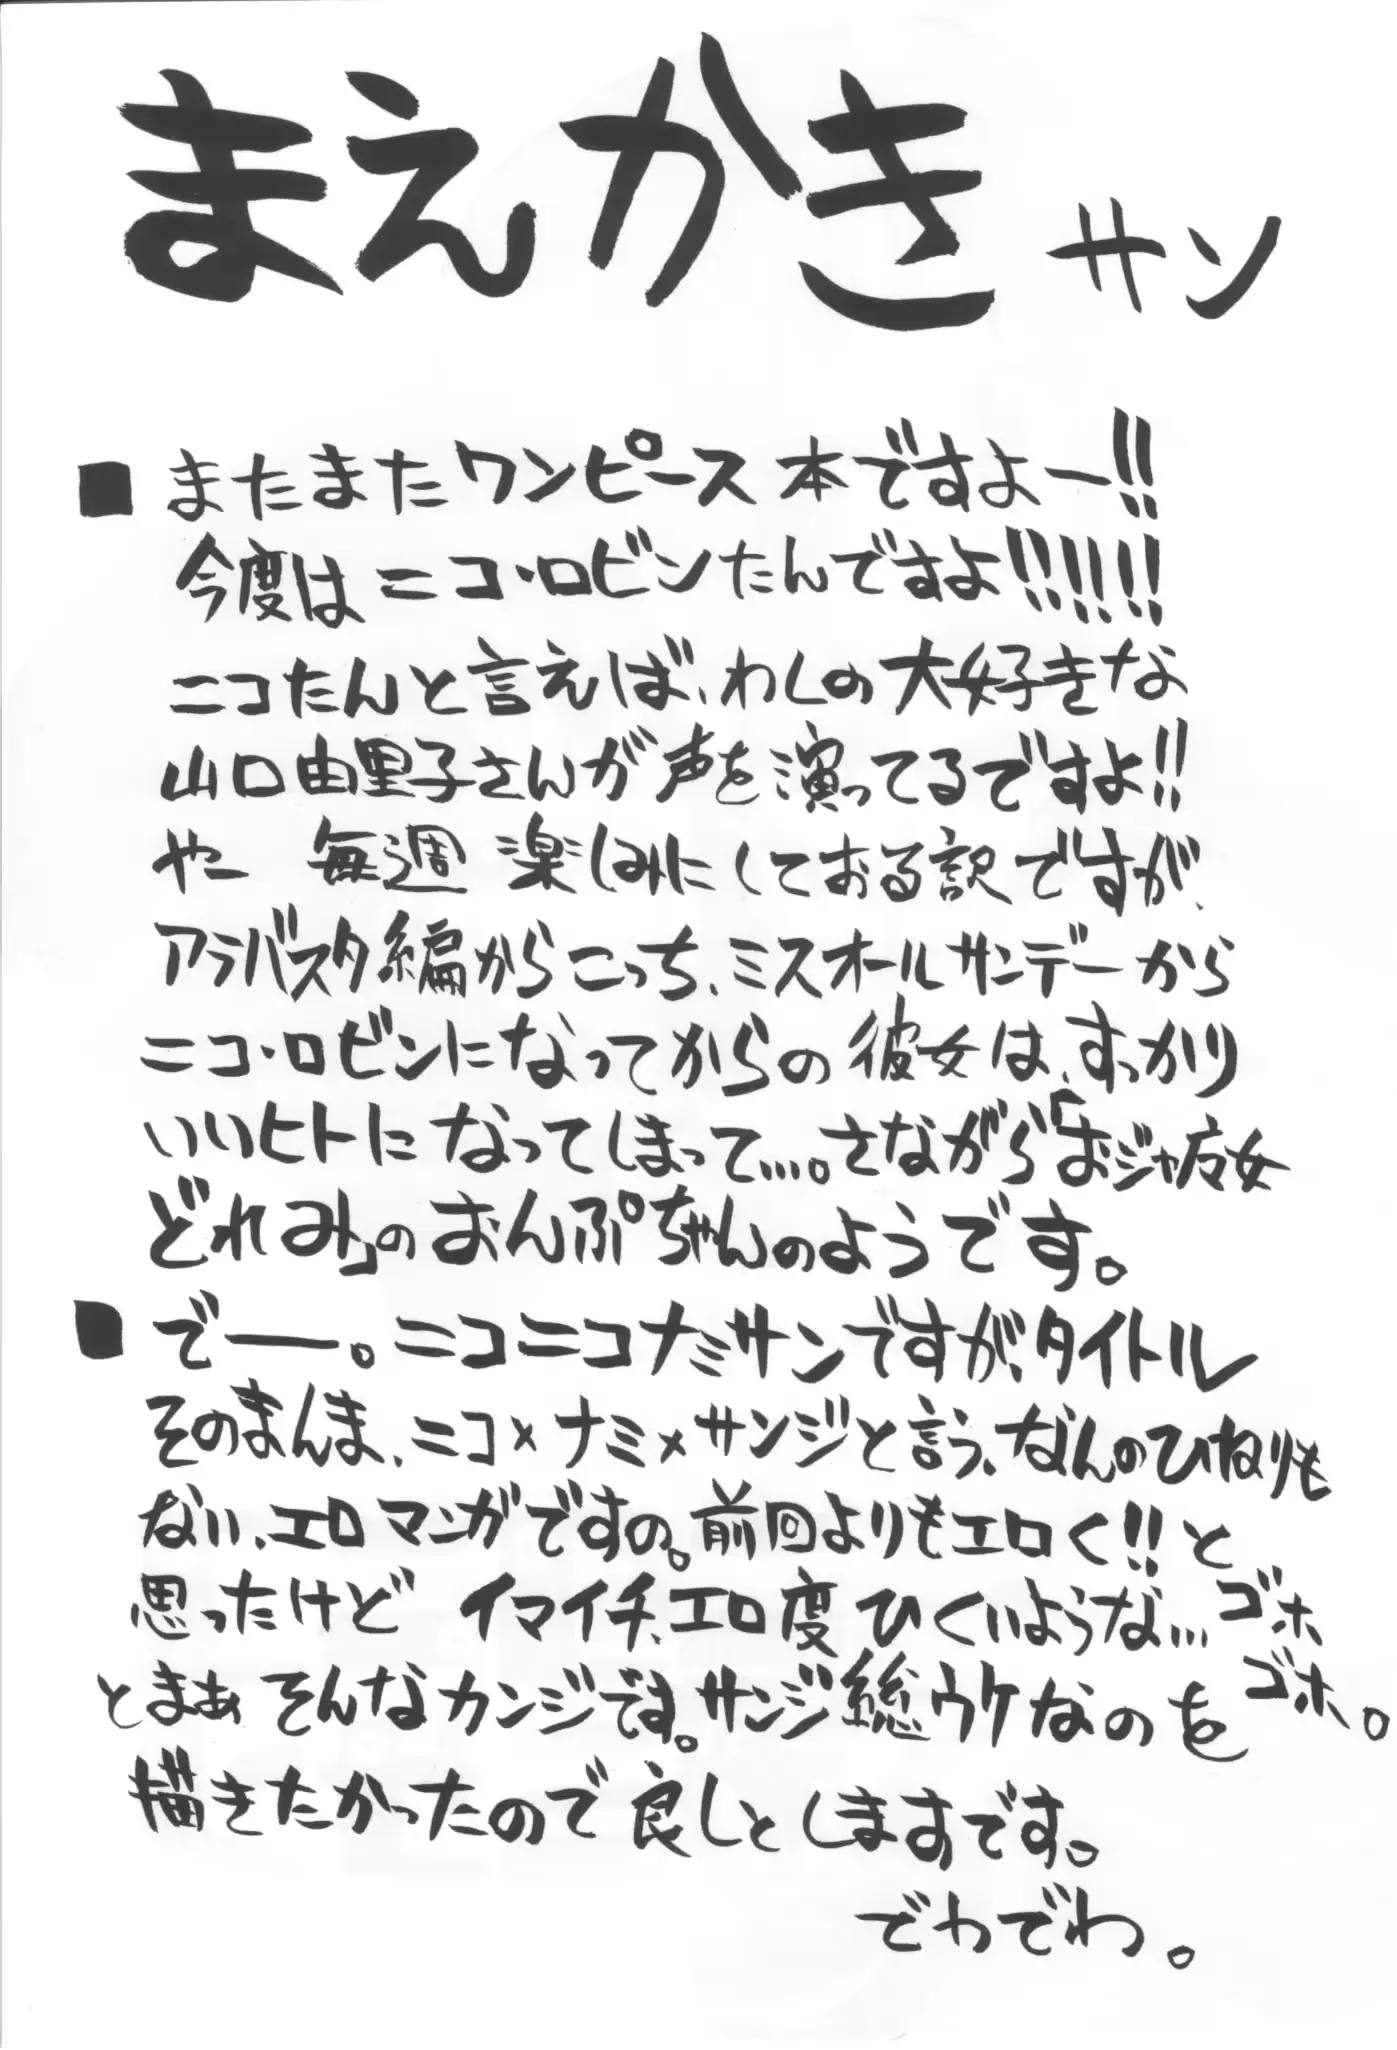 まえかきサン
■またまたワンピース本ですよー!!
今度はニコ・ロビンたんですよ!!!!!!
ニコたんと言えば、わしの大好きな
山口由里子さんが声を演ってるですよ!!
やー 毎週楽しみにしておる訳ですが、
アラバスタ編からこっち、ミスオールサンデーから
ニコ・ロビンになってからの彼女は、すっかり
いいヒトになってしまって…。さながら「おジャ魔女
どれみ」のおんぷちゃんのようです。
■でー。ニコニコナミサンですが、タイトル
そのまんま、ニコ×ナミ×サンジと言う、なんのひねりも
ない、エロマンガですの。前回よりもエロく!!と
思ったけど イマイチ、エロ度ひくいような…ゴホ
ゴホ。
とまぁそんなカンジです。サンジ総ウケなのを
描きたかったので良しとしますです。
でわでわ。